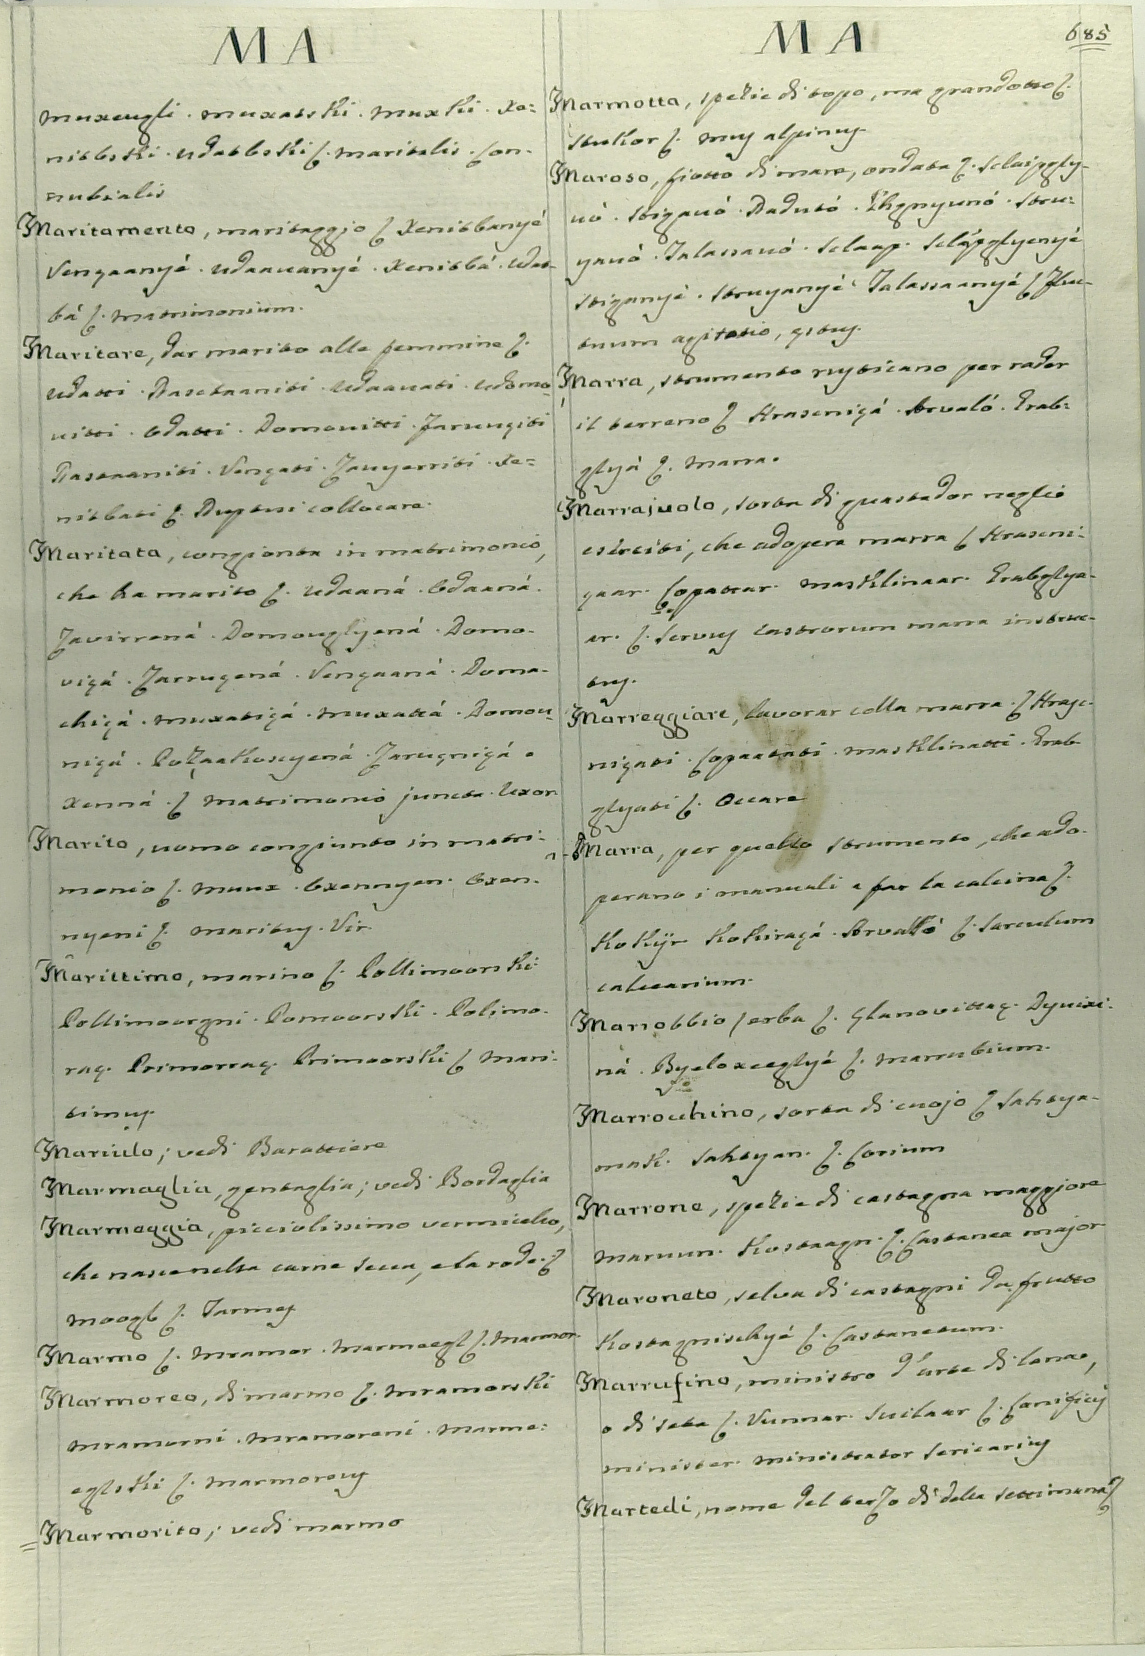 MA
muxeugli. muxatski. muxki. xe=
nitbski. udatbski ζ. maritalis. con-
nubialis
Maritamento, maritaggio ζ xenitbanyé
Vengaanyé. udaavanyé. xenitbá. udat-
bá ζ. matrimonium.
Maritare, dar marito alle femmine ζ.
udatti. Rasctaaniti. udaavati. udomo-
vitti. odatti. Domovitti. Zaruugiti
Rastaaniti. Vengati. Zavyerriti. xe=
nitbati ζ. Nuptui collocare.
Maritata, congionta in matrimonio,
che ha marito ζ. udaaná. odaaná.
Zavirrená. Domouglyená. Domo-
vigá. Zarrugená. Vengaaná. Doma-
chigá. muxatigá. muxattá. Domou-
nigá. Zarugnigá.
xenná. ζ matrimonio juncta. Uxor
Marito, uomo congiunto in matri-
monio ζ. muux. oxennyen. oxen-
nyeni ζ. maritus. Vir.
Marittimo, marino ζ. Pollimoorski
Pollimoorgni. Pomoorski. Polimo-
rag. Primorrag. Primoorski ζ mari-
timus.
Mariulo; vedi Barattiere
Marmaglia, gentaglia; vedi Bordaglia
Marmeggia, picciolissimo vermicello,
che nasce nella carne secca, e la rode. ζ
moogl ζ. Tarmes
Marmo ζ. mramor. marmoegl ζ. marmor.
Marmoreo, di marmo ζ. mramorski
mramorni. mramoreni. marmo=
eglski ζ. marmoreus
Marmorito; vedi marmo
MA
685
Marmotta, spezie di topo, ma grandotto ζ.
Stukor ζ. mus alpinus.
Maroso, fiotto di mare, ondata ζ. Sclaipgly-
vó. Stigavó. Dadutó. stru=
yavó. Talassavó. sclaap. sclápglyenyé
stiganyé. struyanyé. Talassaanyé ζ Fluc-
tuum agitatio, estus.
Marra, strumento rusticano per rader
il terreno ζ Krascnigá. Arvaló. Grab=
glyá ζ. marra.
Marrajuolo, sorta di guastador neglio
eserciti, che adopera marra ζ Krasceni-
gaar. Copattar. masklinaar. Grabglya-
ar. ζ. servus castrorum marra instruc-
tus.
Marreggiare, lavorar colla marra. ζ Krasc-
nigati. Copaatati. masklinatti. Grab
glyati ζ. Occare
Marra, per quello strumento, che ado-
perano i manuali a far la calcina ζ.
Kokijr Kokiragá. Arvalló ζ. sarculum
calcarium.
Marrobbio, erba ζ. Glanovittag. Dyuixi-
ná. Byeloxeeglyé ζ. marrubium.
Marrocchino, sorta di cuojo ζ Sahtya-
mask. Sahtyan. ζ. Corium
Marrone, spezie di castagna maggiore
maruun. Kostaagn. ζ. Castanea major
Maroneto, selva di castagni da frutto
Kostagnischyé ζ. Castanetum.
Marrufino, ministro d'arte di lana,
o di seta ζ. Vunnar. Suilaar ζ. Lanificij
minister. ministrator sericarius
Martedi, nome del terzo di della settimana ζ